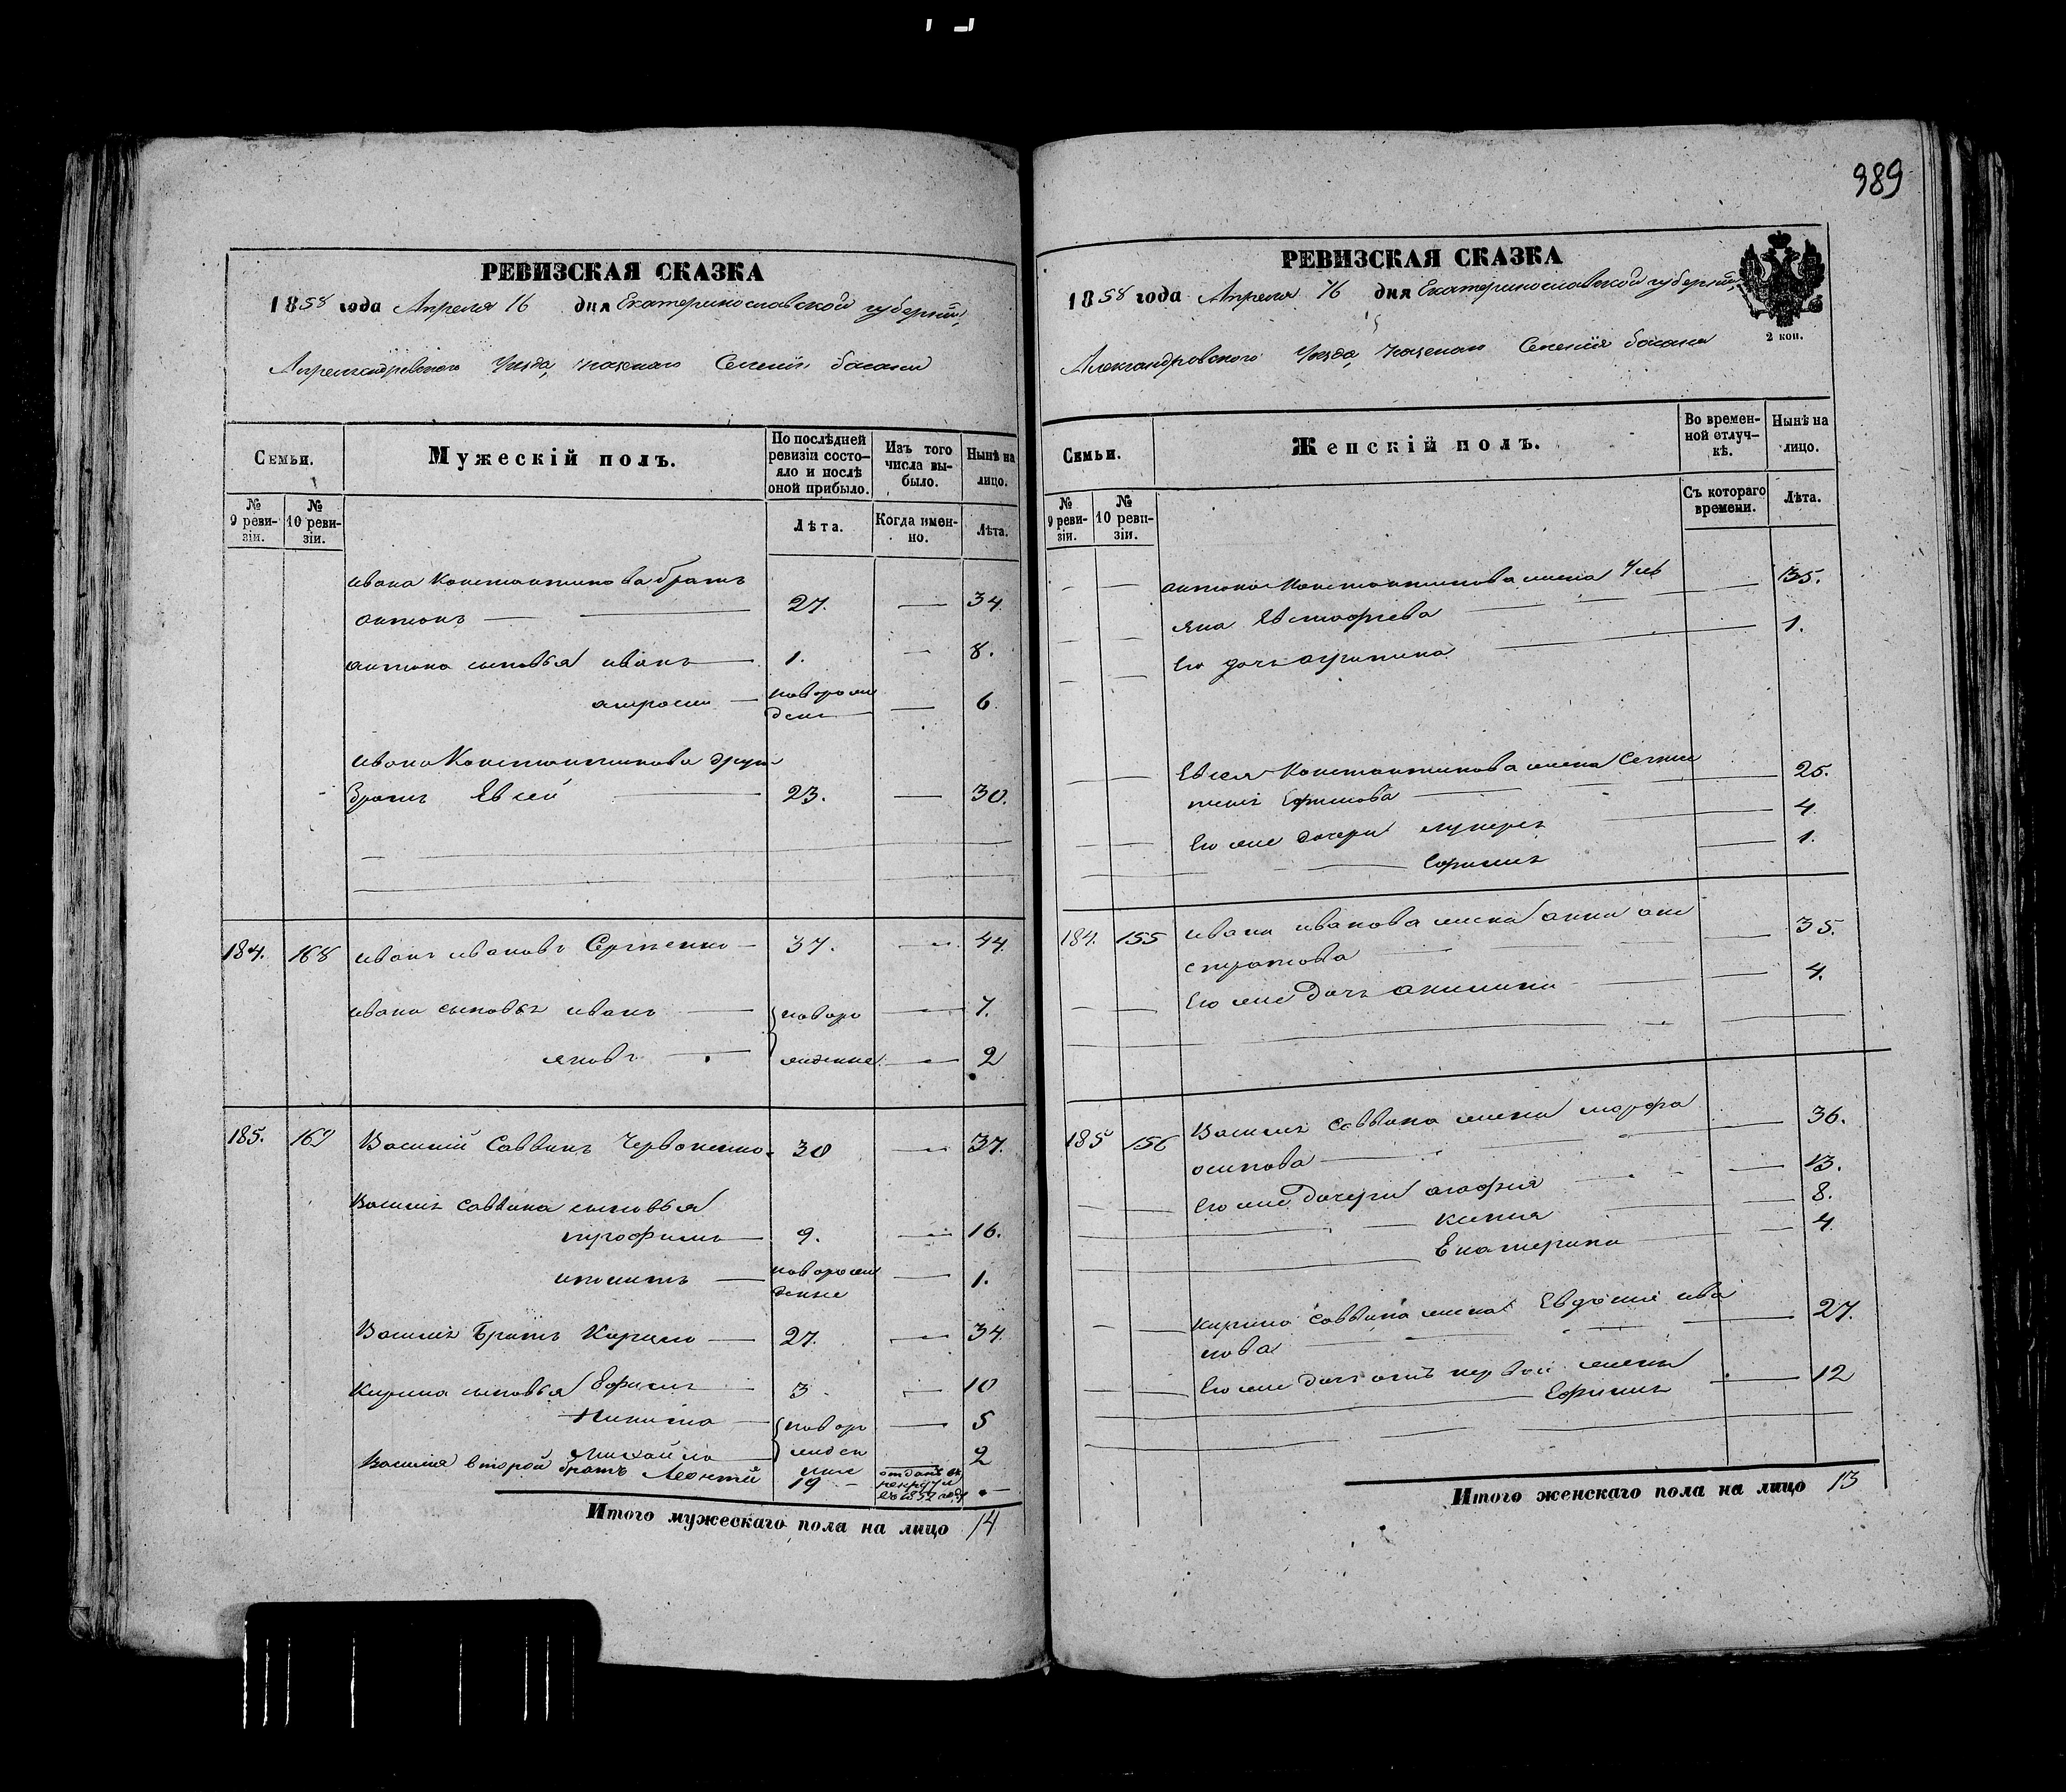 989
РЕВИЗСКАЯ СКАЗКА
1858 года Апреля 16 дня Екатеринославской губернии,
Александровского Уезда, казенаго Селения басани
Семьи.
Мужескій полъ.
По послѣдней ревизіи состо-
яло и послѣ
оной прибыло.
Изъ того
числа вы-
было.
Нынѣ на
лицо.
№
9 реви-
зіи.
№
10 реви-
зіи.
Лѣта.
Когда имен-
но.
Лѣта.
ивана Константинова братъ
антонъ 27. 34
антона сыновья иванъ 1. 8.
новорож
ден 6.
ивана Константинова други
братъ Евсей 23. 30.
184. 168 иванъ ивановъ Сергиенко 37. 44.
ивана сыновья иванъ новоро 7.
яковъ жденные 2
185. 169 Василий Саввинъ Червоненко. 30 37.
Василя Саввина сыновья
трофимъ 9. 16.
иполитъ новорож 1.
денные
Василя братъ Кирило 27. 34.
Кирила сыновья Ефимъ 3 10
Никита новоро 5
Михайло жден 2
Василия второй братъ Леонтий ные 19 отданъ въ
рекруты
въ 1852 году
Итого мужескаго пола на лицо 14
РЕВИЗСКАЯ СКАЗКА
1858 года Апреля 16 дня Екатеринославской губернии,
2 коп.
Александровского Уезда, казенаго Селения басани
Семьи.
Женскій полъ.
Во времен-
ной отлуч-
кѣ.
Нынѣ на
лицо.
№
9 реви-
зіи.
№
10 реви-
зіи.
Съ котораго
времени.
Лѣта.
антона Константинова жена Уль 35.
яна Евстафиева
Его дочь агрипина 1.
Евсея Константинова жена 25.
Ефимова
Его же дочери лукеря 4.
1.
184. 155 ивана иванова жена анна 35.
Его же дочь акилина 4.
185 156 Василя саввина жена марфа 36.
осипова
Его же дочери агафия 13.
ксения 8.
Екатерина 4.
кирила саввина жена Евдокия ива 27.
нова
Его же дочь отъ первой жены
12
Итого женскаго пола на лицо 13